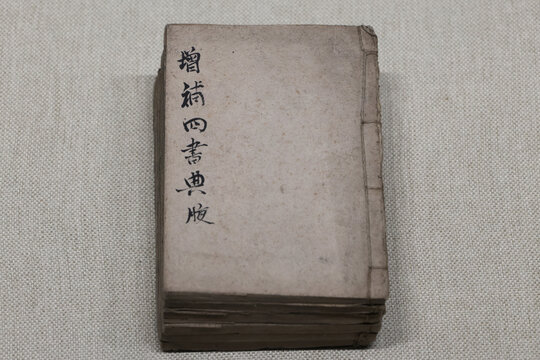 增補四書典腋